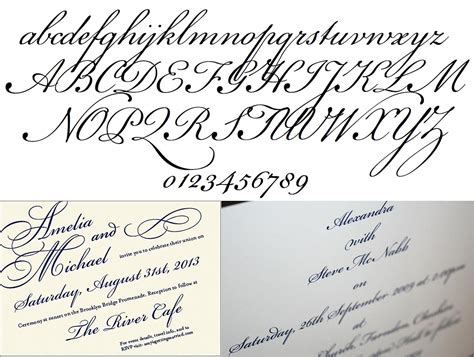 abcdefghijklmnopqrstuvwxyz
ABCDEFGHIJKLM
NOPQRSTUVWXYZ
0123456789
Amelia
and
Michael
invite you to celebrate their union on
Saturday, August 31st, 2013
Ceremony at sunset on the Brooklyn Bridge Promenade. Reception to follow at
The River Cafe
For some details, travel info, and to
RSVP visit:
Alexandra
with
Steve McNabb
on
Saturday, 26th September 2009 at 2:00pm
Church,